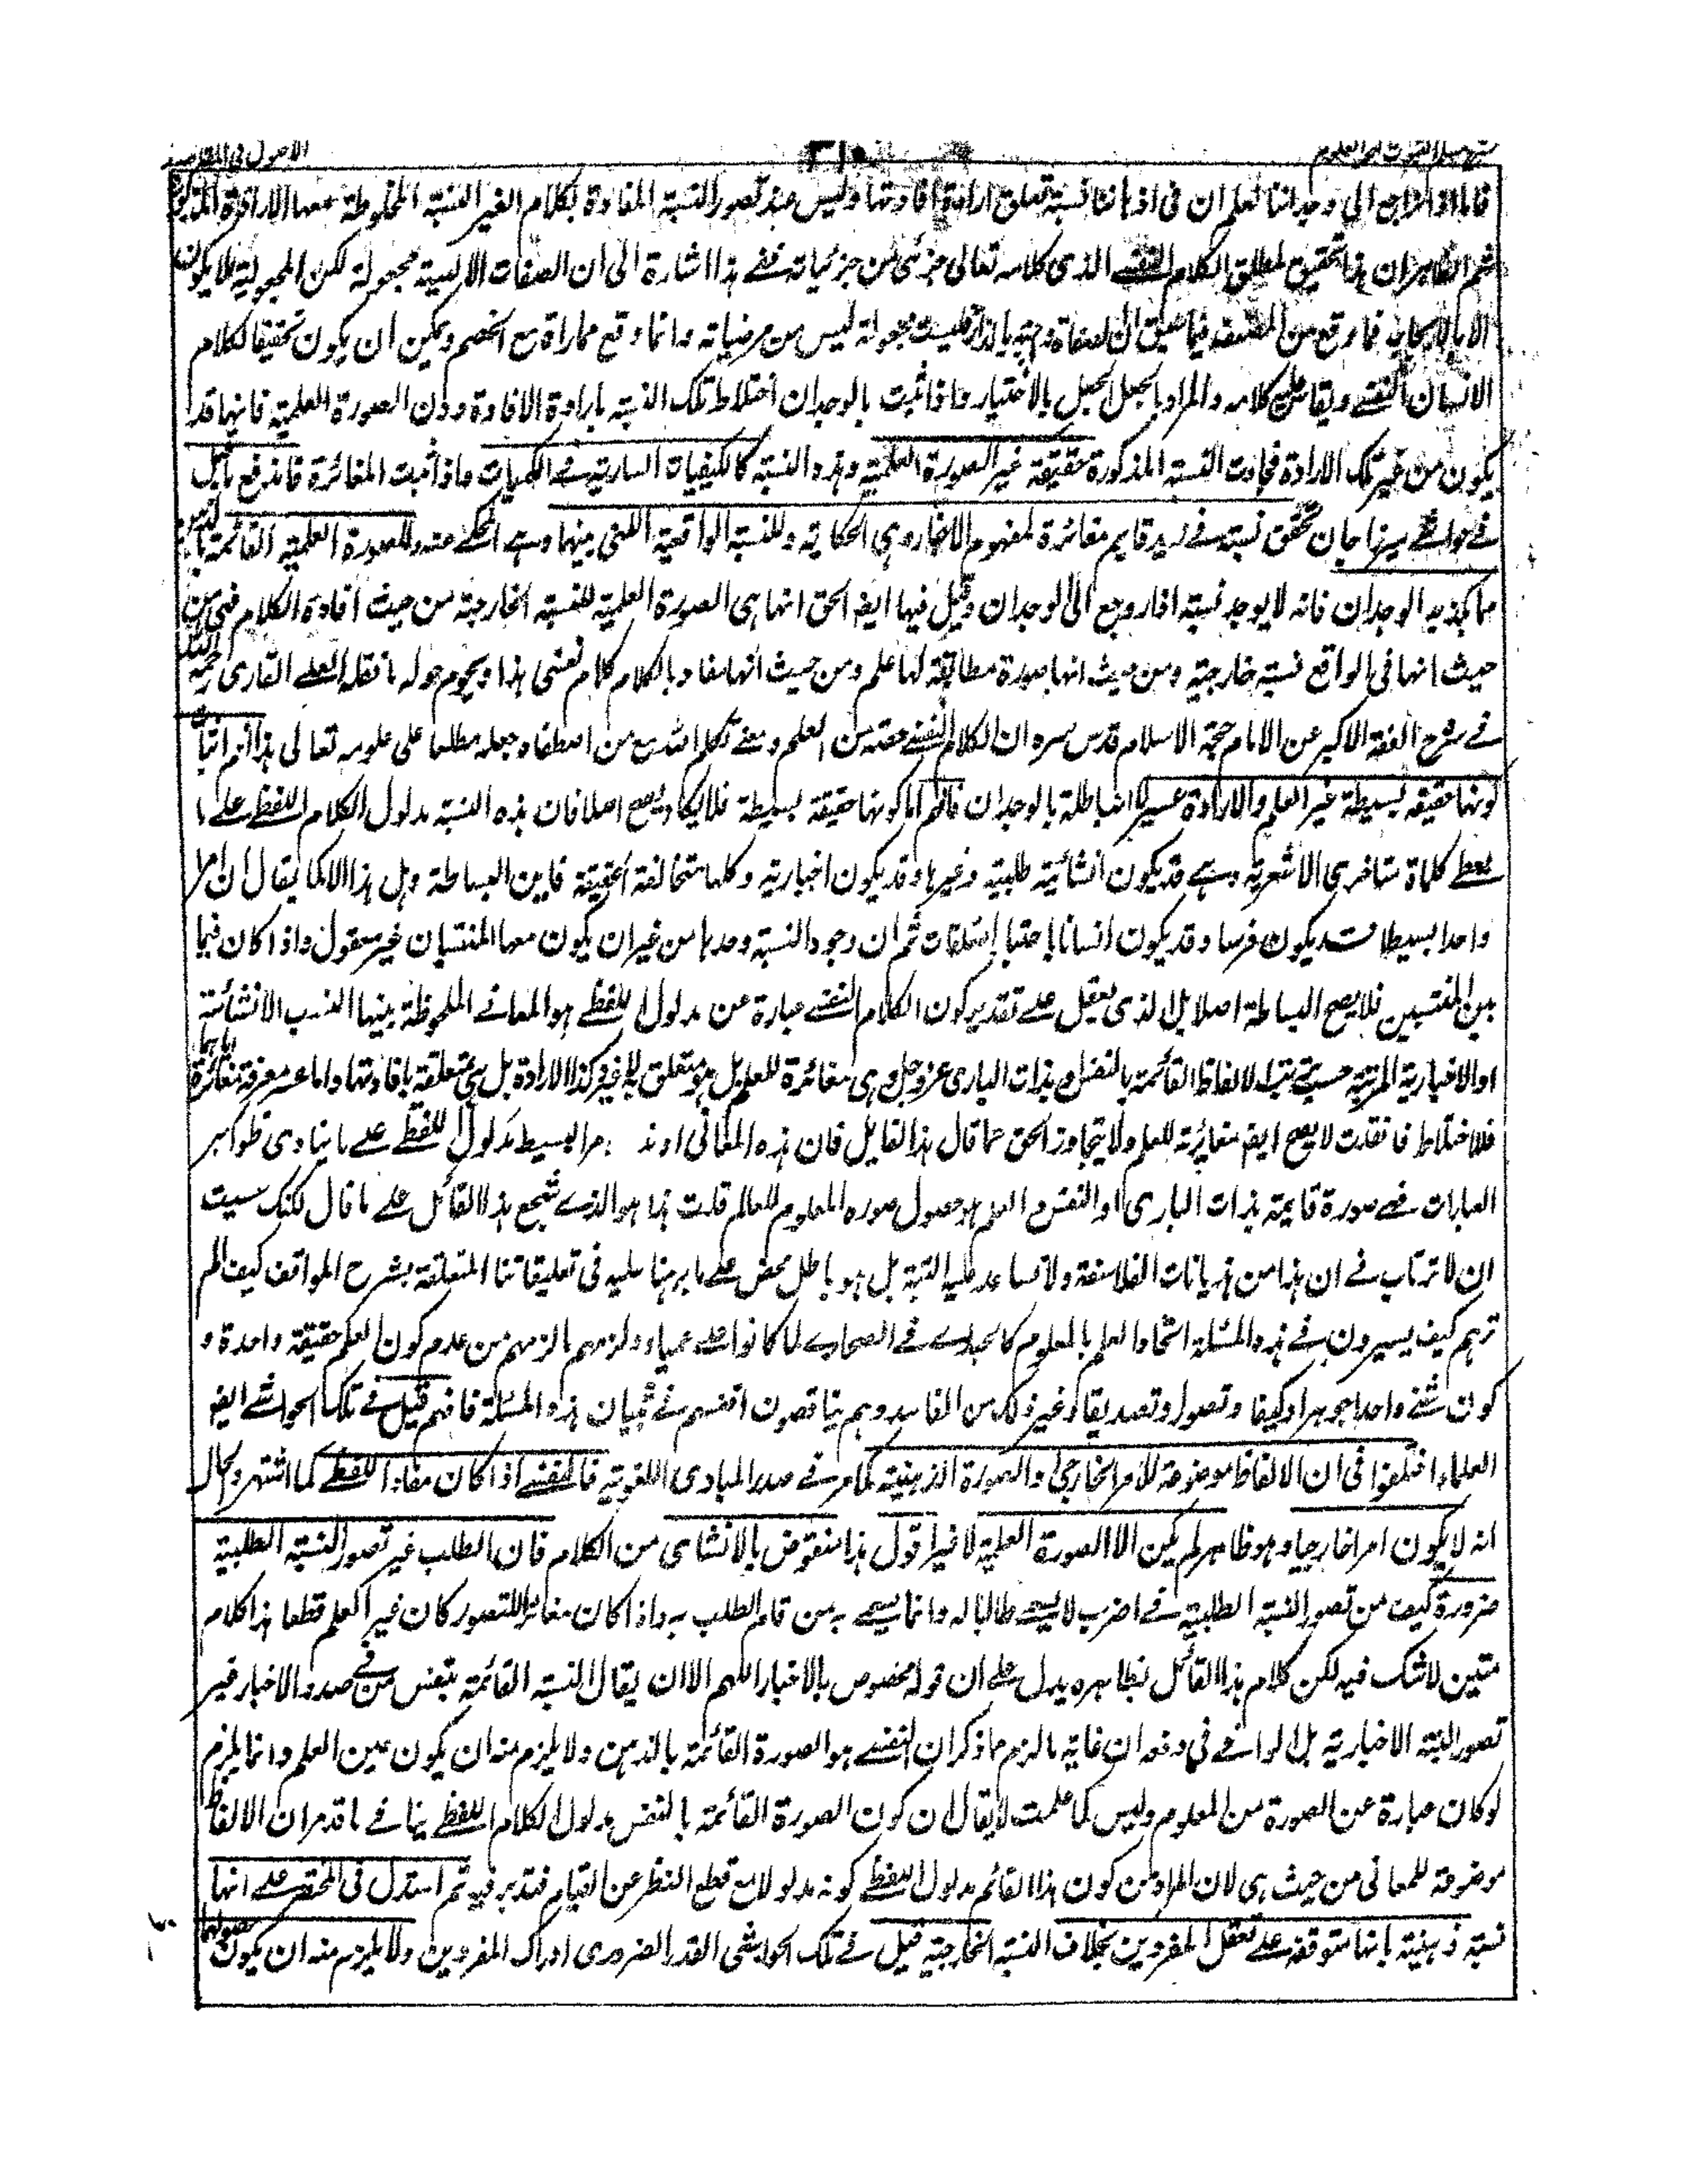 فانا اذا نراجع الى وجداننا نعلم ان فى اذهاننا نسبة تعلق ارادة افادتها وليس عند تصور النسبة المفادة بكلام الغير النسبة المخلوطة معها الارادة
ثم الظاهر ان هذا تحقيق لمطلق الكلام النفسى الذى كلامه تعالى جزئى من جزئياته ففى هذا اشارة الى ان الصفات الالهية مجعولة لكن المجعولية لا يكون
الا بالايجاب فما وقع من المصنف فيما سبق ان ليست مجعولة ليس من مرضياته وانما وقع مماراة مع الخصم ويمكن ان يكون تحقيقا لكلام
الانسان النفسى ويقاس عليه كلامه والمراد بالجعل الجعل بالاختيار واذا ثبت بالوجدان اختلاط تلك النسبة بارادة الافادة دون الصورة العلمية فانها قد
يكون من غير تلك الارادة فجاءت النسبة المذكورة حقيقة غير الصورة العلمية وهذه النسبة كالكيفيات السارية فى الكميات واذ اثبت المغائرة فاندفع ما قيل
فى حواشى ميرزاجان تحقق نسبة فى زيد قايم مغائرة لمفهوم الاخبار وهى الحكاية وللنسبة الواقعية اللتى بينهما وهى المحكى عنه وللصورة العلمية القائمة
مما يكذبه الوجدان فانه لا يوجد نسبة اذا روجع الى الوجدان وقيل فيها ايضا الحق انها هى الصورة العلمية للنسبة الخارجية من حيث افادة الكلام فهى من
حيث انها فى الواقع نسبة خارجية ومن حيث انها صورة مطابقة لها علم ومن حيث انها مفاد بالكلام كلام نفسى هذا ويحوم حوله ما نقله العلى القارى
فى شرح الفقه الاكبر عن الامام حجة الاسلام قدس سره ان الكلام النفسى حصة من العلم ومعنى تكلم الله مع من اصطفاه جعله مطلعا على علومه تعالى هذا ثم اثبات
كونها حقيقة بسيطة غير العلم والارادة عسير لانها باطلة بالوجدان فافهم اما كونها حقيقة بسيطة فلا يكاد يصح اصلا فان هذه النسبة مدلول الكلام اللفظى على ما
يعطى كلماة متاخرى الاشعرية وهى قد يكون انشائية طلبية وغيرها وقد يكون اخبارية وكلها متخالفة الحقيقة فاين البساطة وهل هذا الا كما يقال ان امرا
واحدا بسيطا قد يكون فرسا وقد يكون انسانا باعتبار المتعلقات ثم ان وجود النسبة وحدها من غير ان يكون معها المنتسبان غير معقول واذا كان فيما
بين المنتسبين فلا يصح البساطة اصلا بل الذى يعقل على تقدير كون الكلام النفسى عبارة عن مدلول اللفظى هو المعانى الملحوظة بينها النسب الانشائية
او الاخبارية المرتبة حسب ترتيب الالفاظ القائمة بالنفس او بذات البارى عز وجل وهى مغائرة للعلم بل هو متعلق بها وغير كذا الارادة بل هى متعلقة بافادتها واما عسر معرفة مغائرة
فللاختلاط فان قلت لا يصح ايضا مغايرته للعلم ولا يتجاوز الحق عما قال هذا القايل فان هذه المعانى او هذا الامر البسيط مدلول اللفظى على ما ينادى ظواهر
العبارات فهى صورة قايمة بذات البارى او النفس والعلم هو حصول صورة المعلوم للعالم قلت هذا هو الذى شجع هذا القائل على ما قال لكنك سيت
ان لا ترتاب فى ان هذا من هذيانات الفلاسفة ولا تساعد عليه البتة بل هو باطل محض على ما برهنا عليه فى تعليقاتنا المتعلقة بشرح المواقف كيف الم
ترهم كيف يسيرون فى هذه المسئلة اتحاد العلم بالمعلوم كالحيارى فى الصحارى لما كانوا على عمياء ولزمهم ما لزمهم من عدم كون العلم حقيقة واحدة و
كون شئ واحد جوهرا وكيفا وتصورا وتصديقا وغير ذلك من المفاسد وهم يناقضون انفسهم فى تبيان هذه المسئلة فافهم قيل فى تلك الحواشى ايضا
العلماء اختلفوا فى ان الالفاظ موضوعة للامر الخارجى او الصورة الذهنية كما مر فى صدر المبادى اللغوية فالنفسى اذا كان مفاد اللفظى كما اشتهر والحال
انه لا يكون امرا خارجيا وهو ظاهر لم يكن الا الصورة العلمية لا غير اقول هذا منقوض بالانشاى من الكلام فان الطلب غير تصور النسبة الطلبية
ضرورة كيف من تصور النسبة الطلبية فى اضرب لا يسمى طالبا له وانما يسمى به من قام الطلب به واذا كان مغائرا للتصور كان غير العلم قطعا هذا كلام
متين لا شك فيه لكن كلام هذا القائل بظاهره يدل على ان قوله مخصوص بالاخبار اللهم الا ان يقال النسبة القائمة بنفس من فى صدد الاخبار غير
تصور النسبة الاخبارية بل الواضح فى دفعه ان غاية ما لزم مما ذكر ان النفسى هو الصورة القائمة بالذهن ولا يلزم منه ان يكون عين العلم وانما يلزم
لو كان عبارة عن الصورة من المعلوم وليس كما علمت لا يقال ان كون الصورة القائمة بالنفس مدلول الكلام اللفظى ينافى ما قد مر ان الالفاظ
موضوعة للمعانى من حيث هى لان المراد من كون هذا القائم مدلول اللفظى كونه مدلولا مع قطع النظر عن القيام فتدبر فيه ثم استدل فى المختصر على انها
نسبة ذهنية بانها متوقفة على تعقل المفردين بخلاف النسبة الخارجية قيل فى تلك الحواشى القدر الضرورى ادراك المفردين ولا يلزم منه ان يكون حصولها